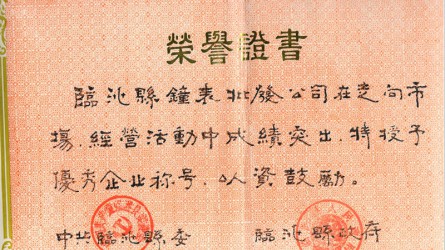 榮譽證書
臨沁縣鐘表批發公司在走向市
塲、經營活動中成績突出、特授予
優秀企业称号、以资鼓勵。
中共臨沁縣委 臨沁縣政府